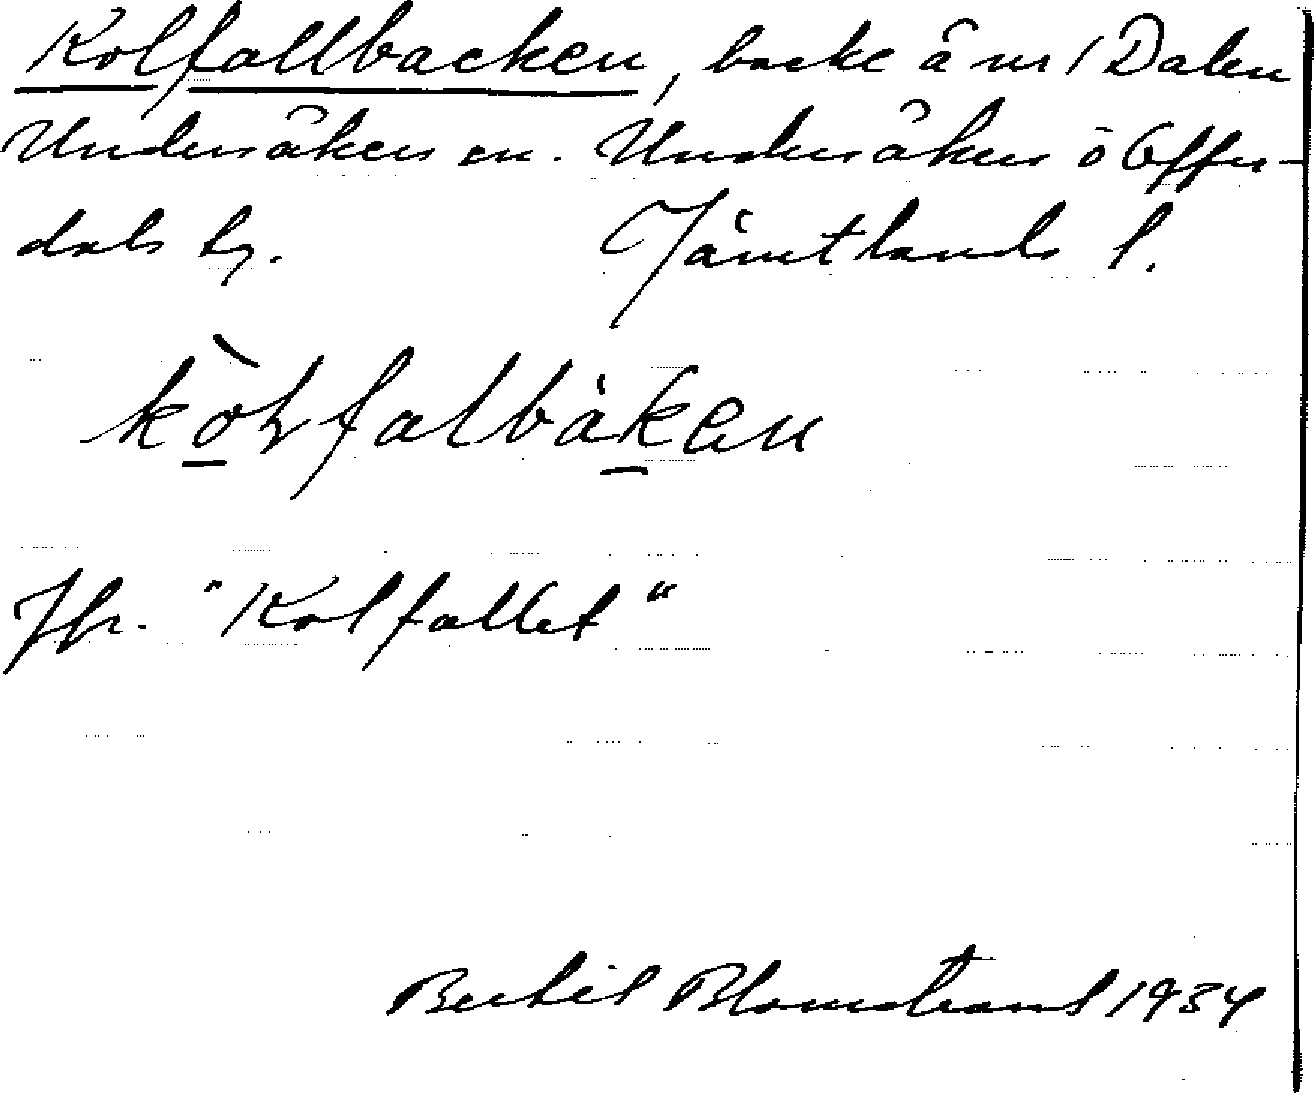 Kolfallbacken, backe å nr 1 Dalen
Undersåker sn. Undersåker o Offer-
dals tg. Jämtlands l.
kòlfalbàken
Jfr. "Kolfallet"
Bertil Blomstrand 1934